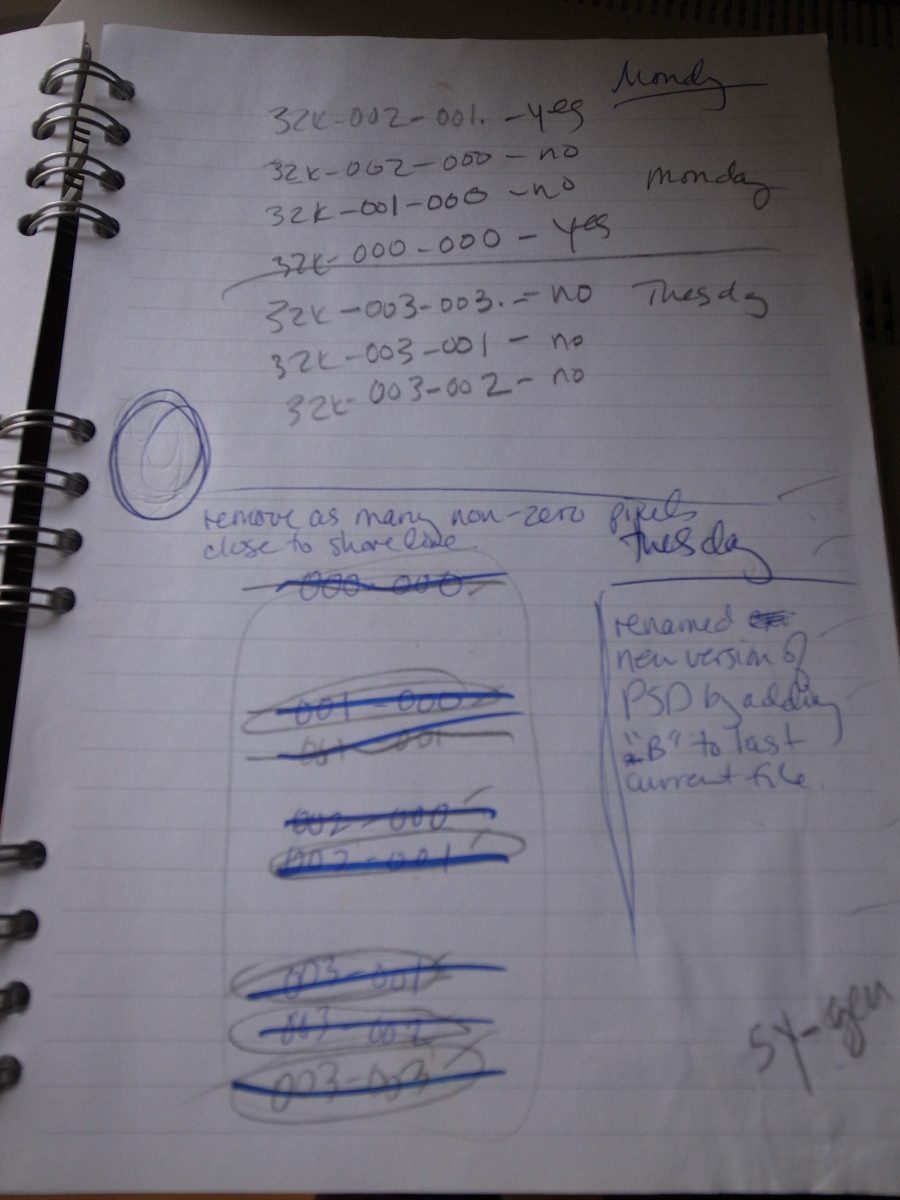 Monday
32k-002-001. - yes
32k-002-000 - no
32k-001-000 - no monday
32k-000-000 - yes
32k-003-003. - no Tuesday
32k-003-001 - no
32k-003-002 - no
remove as many non-zero pixels
close to shoreline
Tuesday
000-000
001-000
001-001
002-000
002-001
003-001
003-002
003-003
renamed
new version of
PSD by adding
"B" to last
current file.
sy-gen